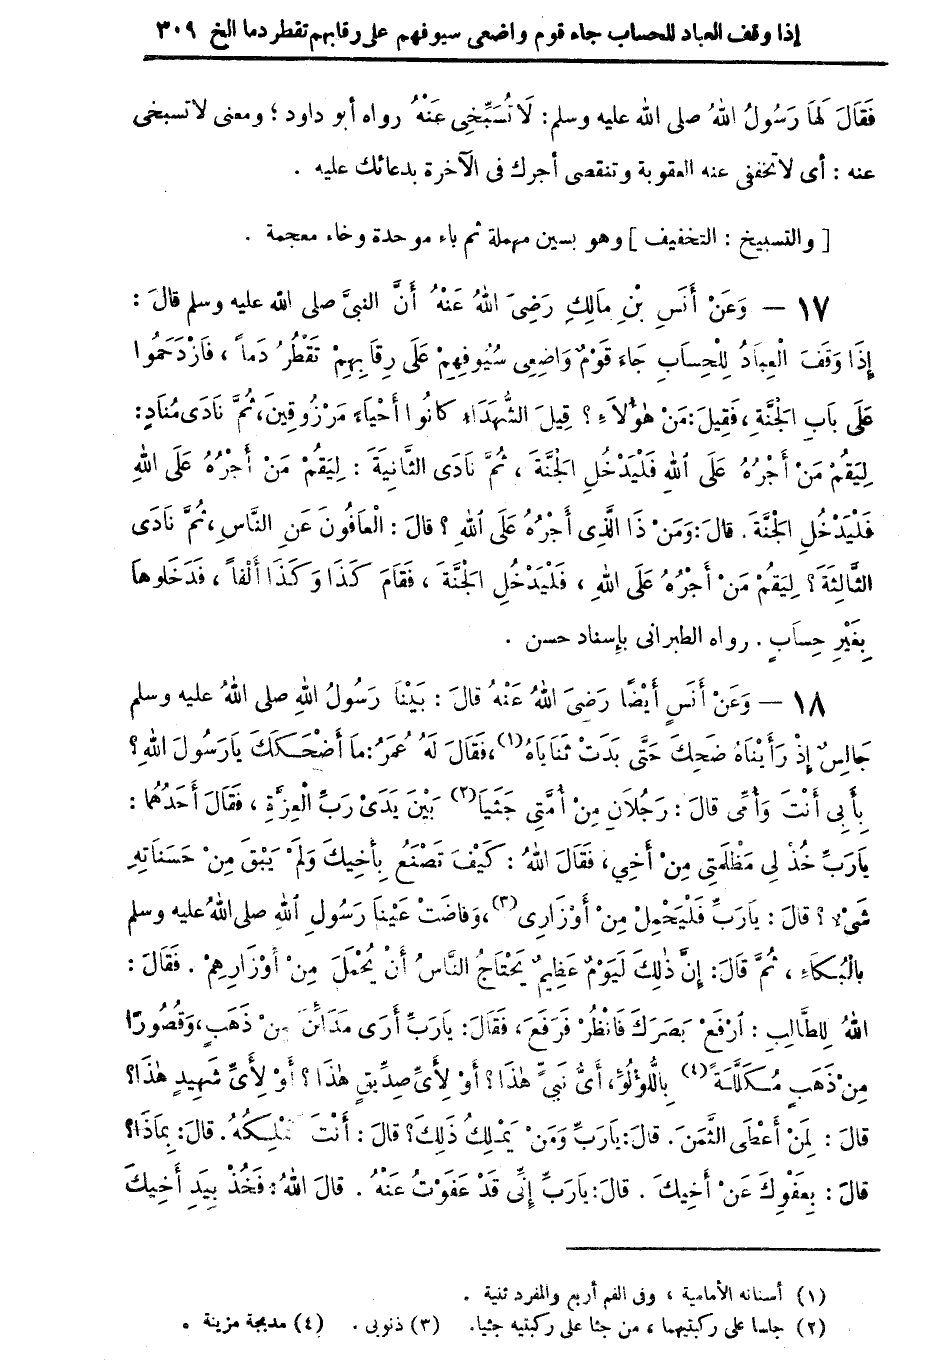 إذا وقف العباد للحساب جاء قوم واضعى سيوفهم على رقابهم تقطر دما الخ ٣٠٩
فَقَالَ لَهَا رَسُولُ اللهُ صلى الله عليه وسلم: لَا تُسَبِّخِى عَنْهُ رواه أبو داود ؛ ومعنى لا تسبخى
عنه : أى لا تخففى عنه العقوبة وتنقصى أجرك فى الآخرة بدعائك عليه .
[ والتسبيخ : التخفيف ] وهو بسين مهملة ثم باء موحدة وخاء معجمة .
١٧ — وَعَنْ أَنَسِ بْنِ مَالِكِ رَضِىَ اللهُ عَنْهُ أَنَّ النبىَّ صلى الله عليه وسلم قالَ :
إِذَا وَقَفَ الْعِبَادُ لِلْحِسَابِ جَاءَ قَوْمٌ وَاضِعِى سُيُوفِهِمْ عَلَى رِقَابِهِمْ تَقْطُرُ دَماً ، فَازْدَحَمُوا
عَلَى بَابِ الجَنَّةِ ، فَقِيلَ: مَنْ هٰؤُلاَءِ ؟ قِيلَ الشُّهَدَاءُ كانُوا أَحْيَاءَ مَرْزُوقِينَ، ثُمَّ نَادَى مُنَادٍ:
لِيَقُمْ مَنْ أَجْرُهُ عَلَى اللهِ فَلْيَدْخُلِ الجَنَّةَ ، ثُمَّ نَادَى الثَّانِيَةَ : لِيَقُمْ مَنْ أَجْرُهُ عَلَى اللهِ
فَلْيَدْخُلِ الجَنَّةَ . قالَ: وَمَنْ ذَا الَّذِى أَجْرُهُ عَلَى اللهِ ؟ قالَ : الْعَافُونَ عَنِ النَّاسِ، ثُمَّ نَادَى
الثَّالِثَةَ ؟ لِيَقُمْ مَنْ أَجْرُهُ عَلَى اللهِ ، فَلْيَدْخُلِ الجَنَّةَ ، فَقَامَ كَذَا وَكَذَا أَلْفاً ، فَدَخَلُوهَا
بِغَيْرِ حِسَابٍ . رواه الطبرانى بإسناد حسن .
١٨ — وَعَنْ أَنَسٍ أَيْضًا رَضِىَ اللهُ عَنْهُ قالَ : بَيْنَا رَسُولُ اللهِ صلى اللهُ عليه وسلم
جَالِسٌ إِذْ رَأَيْنَاهُ ضَحِكَ حَتَّى بَدَتْ ثَنَايَاهُ(١)، فَقَالَ لَهُ عُمَرُ: مَا أَضْحَكَكَ يَا رَسُولَ اللهِ؟
بِأَبِى أَنْتَ وَأُمِّى قالَ : رَجُلاَنِ مِنْ أُمَّتِى جَثَيَا(٢) بَيْنَ يَدَىْ رَبِّ الْعِزَّةِ ، فَقَالَ أَحَدُهُمَا :
يَارَبِّ خُذْ لِى مَظْلَمَتِى مِنْ أَخِى ، فَقَالَ اللهُ : كَيْفَ تَصْنَعُ بِأَخِيكَ وَلَمْ يَبْقَ مِنْ حَسَنَاتِهِ
شَىْءٌ ؟ قالَ : يَارَبِّ فَلْيَحْمِلْ مِنْ أَوْزَارِى(٣)، وَفَاضَتْ عَيْنَا رَسُولِ اللهِ صلى اللهُ عليه وسلم
بِالْبُكَاءِ ، ثُمَّ قَالَ: إِنَّ ذَلِكَ لَيَوْمٌ عَظِيمٌ يَحْتَاجُ النَّاسُ أَنْ يُحْمَلَ مِنْ أَوْزَارِهِمْ . فَقَالَ :
اللهُ لِلطَّالِبِ : ارْفَعْ بَصَرَكَ فَانْظُرْ فَرَفَعَ، فَقَالَ: يَارَبِّ أَرَى مَدَائِنَ مِنْ ذَهَبٍ، وَقُصُورًا
مِنْ ذَهَبٍ مُكَلَّلَةً(٤) بِاللُّؤْلُؤِ، أَىُّ نَبِىٍّ هٰذَا؟ أَوْ لِأَىِّ صِدِّيقٍ هٰذَا ؟ أَوْ لِأَىِّ شَهِيدٍ هٰذَا؟
قالَ : لِمَنْ أَعْطَى الثَّمَنَ . قالَ: يَارَبِّ وَمَنْ يَمْلِكُ ذَلِكَ؟ قالَ : أَنْتَ تَمْلِكُهُ . قالَ: بِمَاذَا؟
قالَ : بِعَفْوِكَ عَنْ أَخِيكَ . قالَ: يَارَبِّ إِنِّى قَدْ عَفَوْتُ عَنْهُ . قالَ اللهُ: فَخُذْ بِيَدِ أَخِيكَ
(١) أسنانه الأمامية ، وفى الفم أربع والمفرد ثنية .
(٢) جلسا على ركبتيهما ، من جثا على ركبتيه جثيا. (٣) ذنوبى . (٤) مدبجة مزينة .